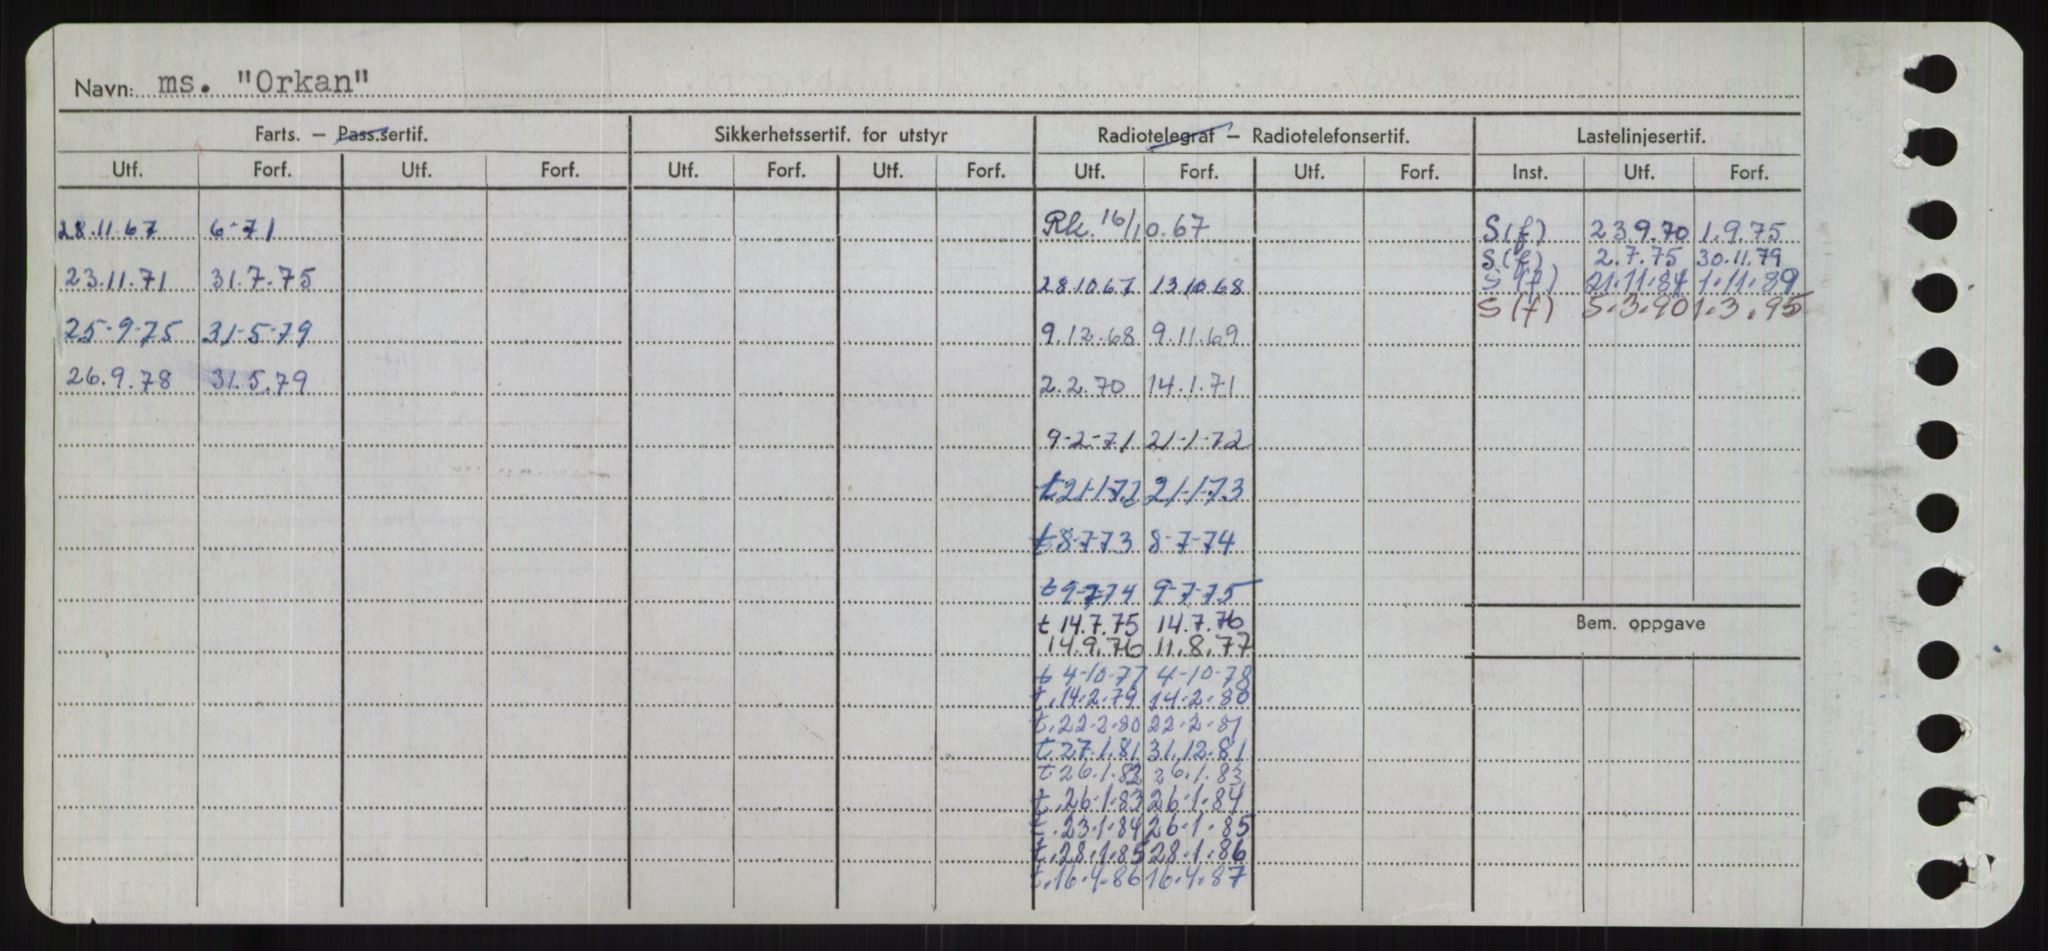 Navn: ms. "Orkan"
Farts. — Pass.sertif. Sikkerhetssertif. for utstyr Radiotelegraf — Radiotelefonsertif. Lastelinjesertif.
Utf. Forf. Utf. Forf. Utf. Forf. Utf. Forf. Utf. Forf. Utf. Forf. Inst. Utf. Forf.
28.11.67 6-71 Rk. 16/10.67 S(f) 23.9.70 1.9.75
S(f) 2.7.75 30.11.79
23.11.71 31.7.75 28.10.67 13.10.68 S(f) 21.11.84 1.11.89
S(f) 5.3.90 1.3.95
25-9-75 31-5-79 9.12.68 9.11.69
26.9.78 31.5.79 2.2.70 14.1.71
9-2-71 21-1-72
t 21-1-72 21-1-73
t 8-7-73 8-7-74
t 9-7-74 9-7-75
t 14.7.75 14.7.76
Bem. oppgave
14.9.76 11.8.77
t 4-10-77 4-10-78
t. 14.2.79 14.2.80
t. 22-2-80 22-2-81
t. 27.1.81 31.12.81
t 26.1.82 26.1.83
t. 26.1.83 26.1.84
t. 23.1.84 26.1.85
t. 28.1.85 28.1.86
t. 16.4.86 16.4.87